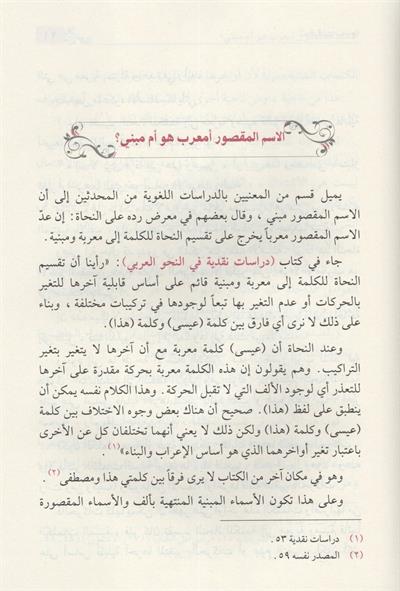 الاسم المقصور أمعرب هو أم مبني؟
يميل قسم من المعنيين بالدراسات اللغوية من المحدثين إلى أن
الاسم المقصور مبني ، وقال بعضهم في معرض رده على النحاة: إن عدّ
الاسم المقصور معرباً يخرج على تقسيم النحاة للكلمة إلى معربة ومبنية.
جاء في كتاب (دراسات نقدية في النحو العربي) : «رأينا أن تقسيم
النحاة للكلمة إلى معربة ومبنية قائم على أساس قابلية آخرها للتغير
بالحركات أو عدم التغير بها تبعاً لوجودها في تركيبات مختلفة ، وبناء
على ذلك لا نرى أي فارق بين كلمة (عيسى) وكلمة (هذا).
وعند النحاة أن (عيسى) كلمة معربة مع أن آخرها لا يتغير بتغير
التراكيب. وهم يقولون إن هذه الكلمة معربة بحركة مقدرة على آخرها
للتعذر أي لوجود الألف التي لا تقبل الحركة . وهذا الكلام نفسه يمكن أن
ينطبق على لفظ (هذا). صحيح أن هناك بعض وجوه الاختلاف بين كلمة
(عيسى) وكلمة (هذا) ولكن ذلك لا يعني أنهما تختلفان كل عن الأخرى
باعتبار تغير أواخرهما الذي هو أساس الإعراب والبناء»(١) .
وهو في مكان آخر من الكتاب لا يرى فرقاً بين كلمتي هذا ومصطفى(٢).
وعلى هذا تكون الأسماء المبنية المنتهية بألف والأسماء المقصورة
(١) دراسات نقدية ٥٣ .
(٢) المصدر نفسه ٥٩ .